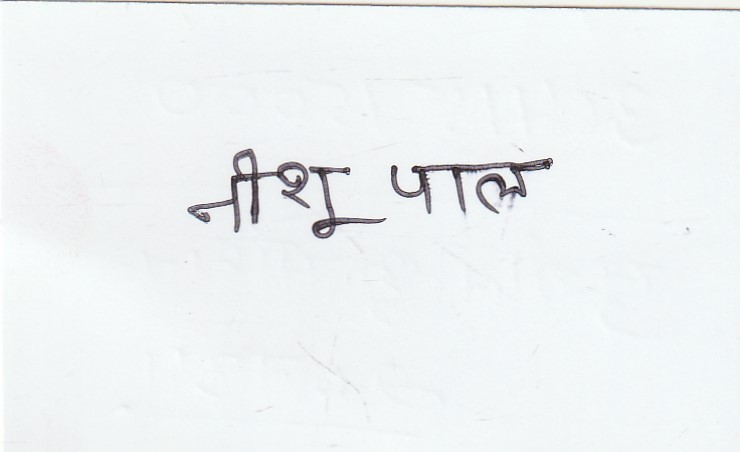 नीशू पाल